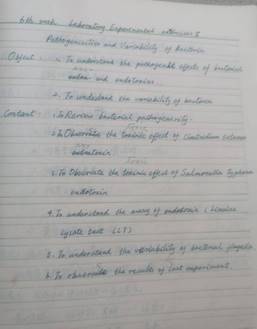 6th week Laboratory Experimental II
Pathogenicities and Variability of bacteria
Object: 1. To understand the pathogenic effects of bacterial
and endotoxins.
2. To understand the variability of bacteria
Content: 1. To Review bacterial pathogenicity.
2. To Observate the toxic effect of Clostridium tetanus
3. To Observate the toxic effect of Salmonella typhosa
endotoxin
4. To understand the assay of endotoxin (limulus
lysate test (LT)
5. To understand the variability of bacterial flagella.
6. To observe the results of last experiment.